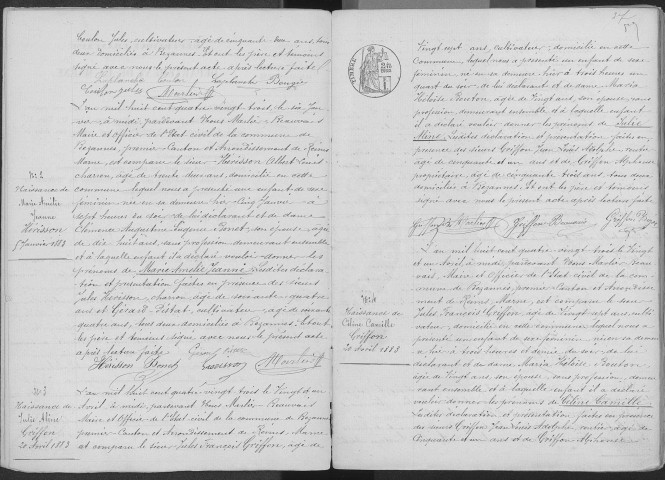 Coulon Jules, cultivateur âgé de cinquante ans, tous
deux domiciliés à Bezannes. Et ont les père et témoins
signé avec nous le présent acte après lecture faite
Laplanche
L'an mil huit cent quatre vingt trois le six Jan-
vier à midi, pardevant Nous Martin Beauvais
Maire et officier de l'Etat civil de la commune de
Bezannes, premier Canton et Arrondissement de Reims
Marne, est comparu le sieur Hérisson Albert Louis
charron, âgé de trente deux ans, domicilié en cette
commune lequel nous a présenté un enfant de sexe
féminin née en sa demeure hier cinq Janvier à
sept heures du soir, de lui déclarant et de dame
Clémence Augustine Eugénie son épouse, âgée
de dix huit ans, sans profession demeurant ensemble
et à laquelle enfant il a déclaré vouloir donner les
prénoms de Marie Amélie Jeanne. Lesdites déclara-
tion et présentation faites en présence des sieurs
Jules Hérisson, charron âgé de soixante quatre
ans et Gérard Pistat, cultivateur, âgé de cinquante
quatre ans, tous deux domiciliés à Bezannes. Et ont
les père et témoins signé avec nous le présent acte
après lecture faite
Hérisson
N° 2
Naissance de
Marie Amélie
Jeanne
Hérisson
5 Janvier 1883
N° 3
Naissance de
Julie Aline
Griffon
20 Avril 1883
L'an mil huit cent quatre vingt trois le Vingt et un
Avril à midi, pardevant Nous Martin Beauvais
Maire et Officier de l'Etat civil de la commune de Bezannes
premier Canton et Arrondissement de Reims, Marne
est comparu le sieur Jules François Griffon, âgé de
Vingt sept ans, cultivateur, domicilié en cette
Commune lequel nous a présenté un enfant de sexe
féminin, née en sa demeure hier à trois heures un
quart du soir de lui déclarant et de dame Maria
Héloïse Bouton, âgée de Vingt ans, son épouse, sans
profession, demeurant ensemble et à laquelle enfant
il a déclaré vouloir donner les prénoms de Julie
Aline. Lesdites déclaration et présentation faites en pré-
sence des sieurs Griffon Jean Louis Adolphe rentier
âgé de cinquante et un ans et de Griffon Alphonse
propriétaire, âgé de cinquante trois ans, tous deux
domiciliés à Bezannes. Et ont les père et témoins
signé avec nous le présent acte après lecture faite
N° 4
Naissance de
Céline Camille
Griffon
20 Avril 1883
L'an mil huit cent quatre vingt trois le Vingt
et un Avril à midi, pardevant Nous Martin Beau-
vais, Maire et Officier de l'Etat civil de la com-
mune de Bezannes, premier Canton et Arrondisse-
ment de Reims Marne, est comparu le sieur
Jules François Griffon âgé de Vingt sept ans, culti-
vateur, domicilié en cette commune lequel nous a
présenté un enfant de sexe féminin née en sa demeu-
re hier à trois heures et demie du soir de lui décla-
rant et de dame Maria Héloïse Bouton,
âgée de Vingt ans, son épouse, sans profession, demeu-
rant ensemble et à laquelle enfant il a déclaré
vouloir donner les prénoms de Céline Camille.
Lesdites déclaration et présentation faites en présence
des sieurs Griffon Jean Louis Adolphe rentier, âgé de
Cinquante et un ans et de Griffon Alphonse